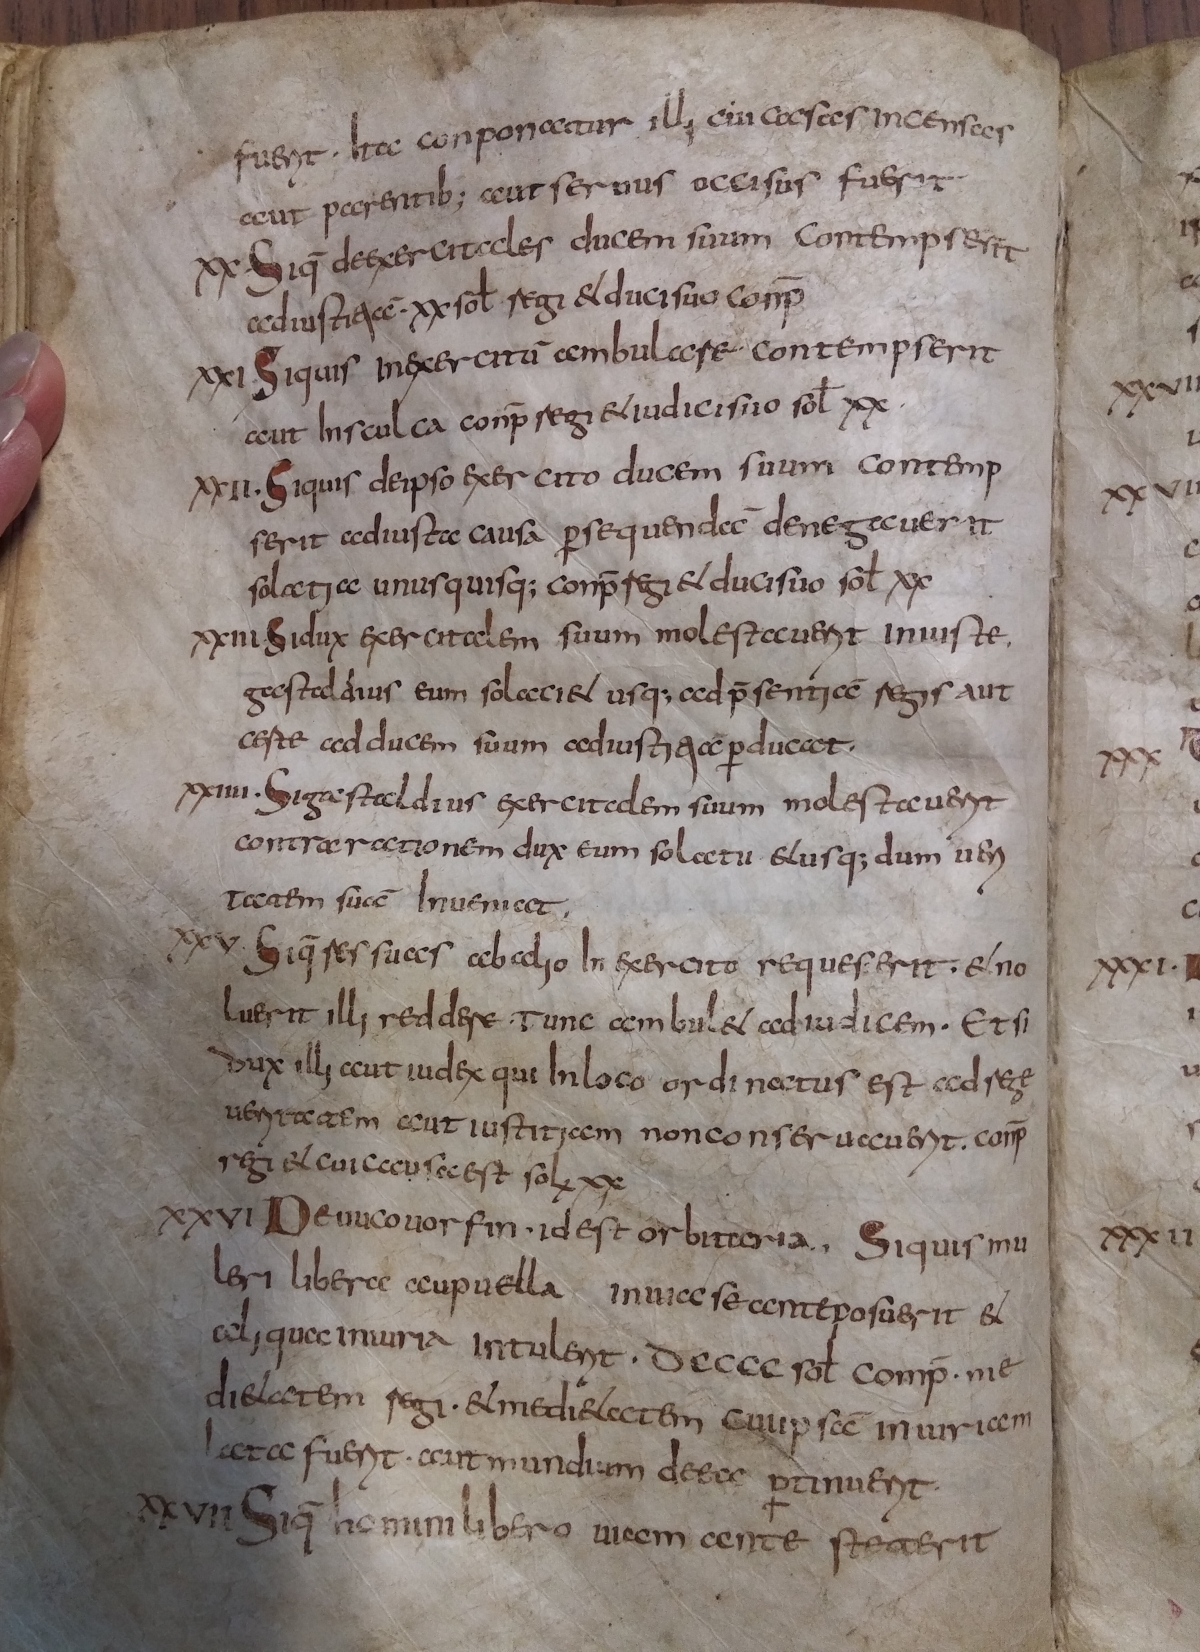 fuerit. ita conponatur illi cui casas incensas
aut parentib; aut seruus occisus fuerit
XX. Siq̄ deexercitales ducem suum contempserit
adiustitiā. XX sol̄ regi & duci suo conp̄
XXI. Siquis inexercitū ambulare contempserit
aut In sculca conp̄ regi & iudici suo sol̄ XX.
XXII. Siquis deipso exercito ducem suum contemp
serit adiusta causa ꝑsequendā denegauerit
solatia unusquisq; conp̄ regi & duci suo sol̄ XX
XXIII. Sidux exercitalem suum molestauerit iniuste.
gastaldius eum solaci& usq; adp̄sentiā regis aut
certe ad ducem suum adiustitiā ꝑducat.
XXIIII. Sigastaldius exercitalem suum molestauerit
contra rationem dux eum solaetu &usq; dum ueri
tatem suā Inueniat.
XXV. Siq̄ res suas ab alio In exercito requeserit. & no
luerit illi reddere. Tunc ambul& ad iudicem. Et si
dux illi aut iudex qui In loco ordinatus est ad rege
ueritatem aut iustitiam non conseruauerit. conp̄
regi & cui causa est sol; XX
XXVI Deuuecuorfin. id est orbitaria., Siquis mu
leri libera au puella in uia se anteposuerit &
aliqua iniuria intulerit. DCCCC sol̄ comp̄. me
di&atem regi. & medi&atem cui ipsā iniuriam
lata fuerit. aut mundium deea ꝑtinuerit.
XXVII Siq̄ homini libero uiam ante steterit